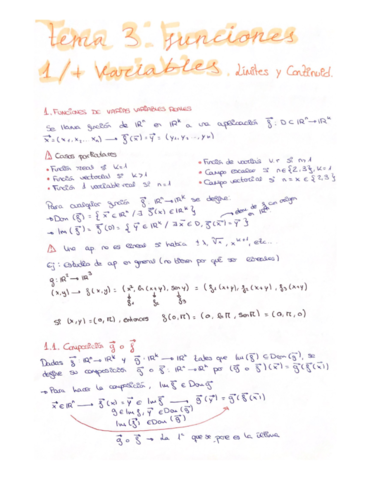 Tema 3: Funciones
1/+ Variables. Límites y Continuid.
1. FUNCIONES DE VARIAS VARIABLES REALES
Se llama función de ℝⁿ en ℝᵏ a una aplicación f⃗: D⊂ℝⁿ→ℝᵏ
x⃗=(x₁, x₂, ... xₙ) → f⃗(x⃗)=y⃗=(y₁, y₂, ... yₖ)
⚠ Casos particulares
• Función real si k=1
• Función vectorial si k>1
• Función 1 variable real si n=1
• Función de varias v.r si n>1
• Campo escalar si n∈{2,3}, k=1
• Campo vectorial si n=k∈{2,3}
Para cualquier función f⃗: ℝⁿ→ℝᵏ se define:
→ Dom(f⃗)={x⃗∈ℝⁿ / ∃ f⃗(x⃗)∈ℝᵏ}
→ Im(f⃗)= f⃗(D)={y⃗∈ℝᵏ / ∃x⃗∈D, f⃗(x⃗)=y⃗}
⚠ Una ap no es lineal si habia
Ej: estudio de ap en general (no tienen por qué ser lineales)
g: ℝ²→ℝ³
(x,y) → f(x,y) = (x², ln(x+y), sen y) = (f₁(x,y), f₂(x,y), f₃(x,y)
f₁ f₂ f₃
Si (x,y)=(0,π), entonces f(0,π)=(0, ln π, sen π) = (0, ln π, 0)
1.1. Composición g⃗ o f⃗
Dadas f⃗: ℝⁿ→ℝᵏ y g⃗: ℝᵏ→ℝᵖ tales que Im(f⃗)⊂Dom(g⃗), se
define su composición g⃗ o f⃗: ℝⁿ→ℝᵖ por (g⃗ o f⃗)(x⃗)=g⃗(f⃗(x⃗))
→ Para hacer la composición, Im f⃗ ⊂ Dom g⃗
x⃗∈ℝⁿ → f⃗(x⃗) = y⃗ ∈ Im f⃗ → g⃗(y⃗) = g⃗(f⃗(x⃗))
y∈Im f, y⃗∈Dom(g⃗)
Im f⃗ ⊂ Dom(g⃗)
g⃗ o f⃗ → La 1ª que se pone es la última